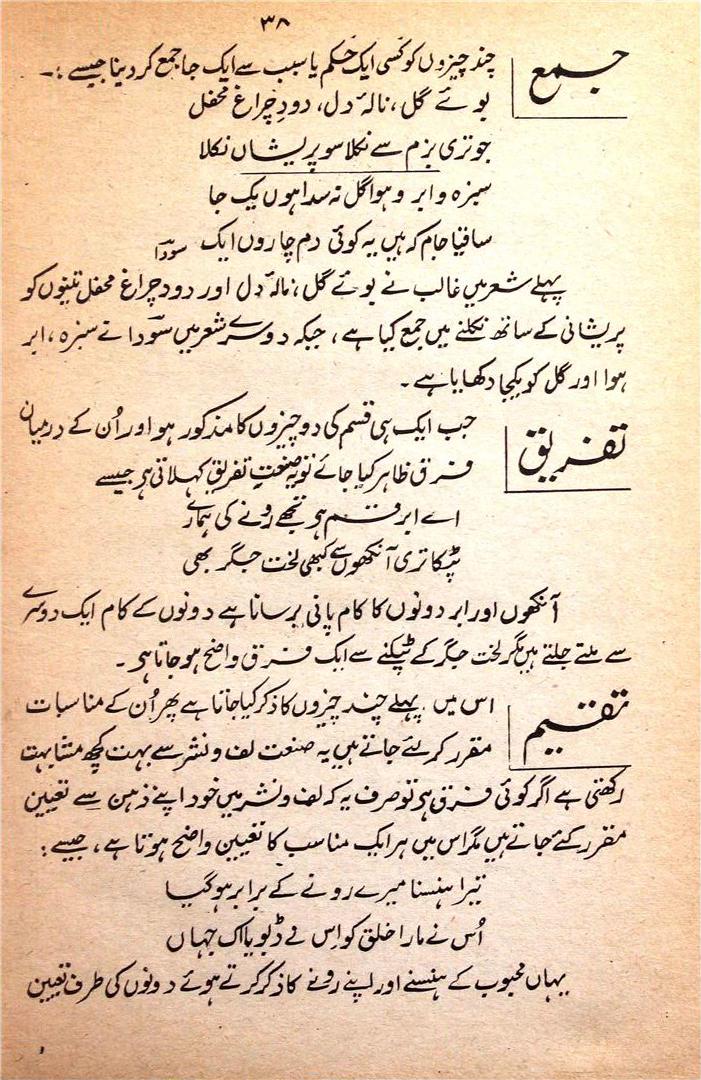 ۳۸
جمع
چند چیزوں کو کسی ایک حکم یا سبب سے ایک جا جمع کر دینا جیسے :۔
بوئے گل، نالۂ دل، دودِ چراغ محفل
جو تری بزم سے نکلا سو پریشاں نکلا
سبزہ و ابر و ہوا گل نہ سدا ہوں یک جا
ساقیا جام کہ ہیں یہ کوئی دم چاروں ایک سودا
پہلے شعر میں غالب نے بوئے گل، نالۂ دل اور دود چراغ محفل تینوں کو
پریشانی کے ساتھ نکلنے میں جمع کیا ہے، جبکہ دوسرے شعر میں سودا نے سبزہ، ابر
ہوا اور گل کو یکجا دکھایا ہے۔
تفریق
جب ایک ہی قسم کی دو چیزوں کا مذکور ہو اور اُن کے درمیان
فرق ظاہر کیا جائے تو یہ صنعتِ تفریق کہلاتی ہی جیسے
اے ابر قسم ہو تجھے رونے کی ہمارے
ٹپکا تری آنکھوں سے کبھی لخت جگر بھی
آنکھوں اور ابر دونوں کا کام پانی برسانا ہے دونوں کے کام ایک دوسرے
سے ملتے جلتے ہیں مگر لخت جگر کے ٹپکنے سے ایک فرق واضح ہو جاتا ہی۔
تقسیم
اس میں پہلے چند چیزوں کا ذکر کیا جاتا ہے پھر اُن کے مناسبات
مقرر کر لئے جاتے ہیں یہ صنعت لف و نشر سے بہت کچھ مشابہت
رکھتی ہے اگر کوئی فرق ہی تو صرف یہ کہ لف و نشر میں خود اپنے ذہن سے تعیین
مقرر کئے جاتے ہیں مگر اس میں ہر ایک مناسب کا تعیین واضح ہوتا ہے، جیسے :
تیرا ہنسنا میرے رونے کے برابر ہو گیا
اُس نے مارا خلق کو اِس نے ڈبویا اک جہاں
یہاں محبوب کے ہنسنے اور اپنے رونے کا ذکر کرتے ہوئے دونوں کی طرف تعیین